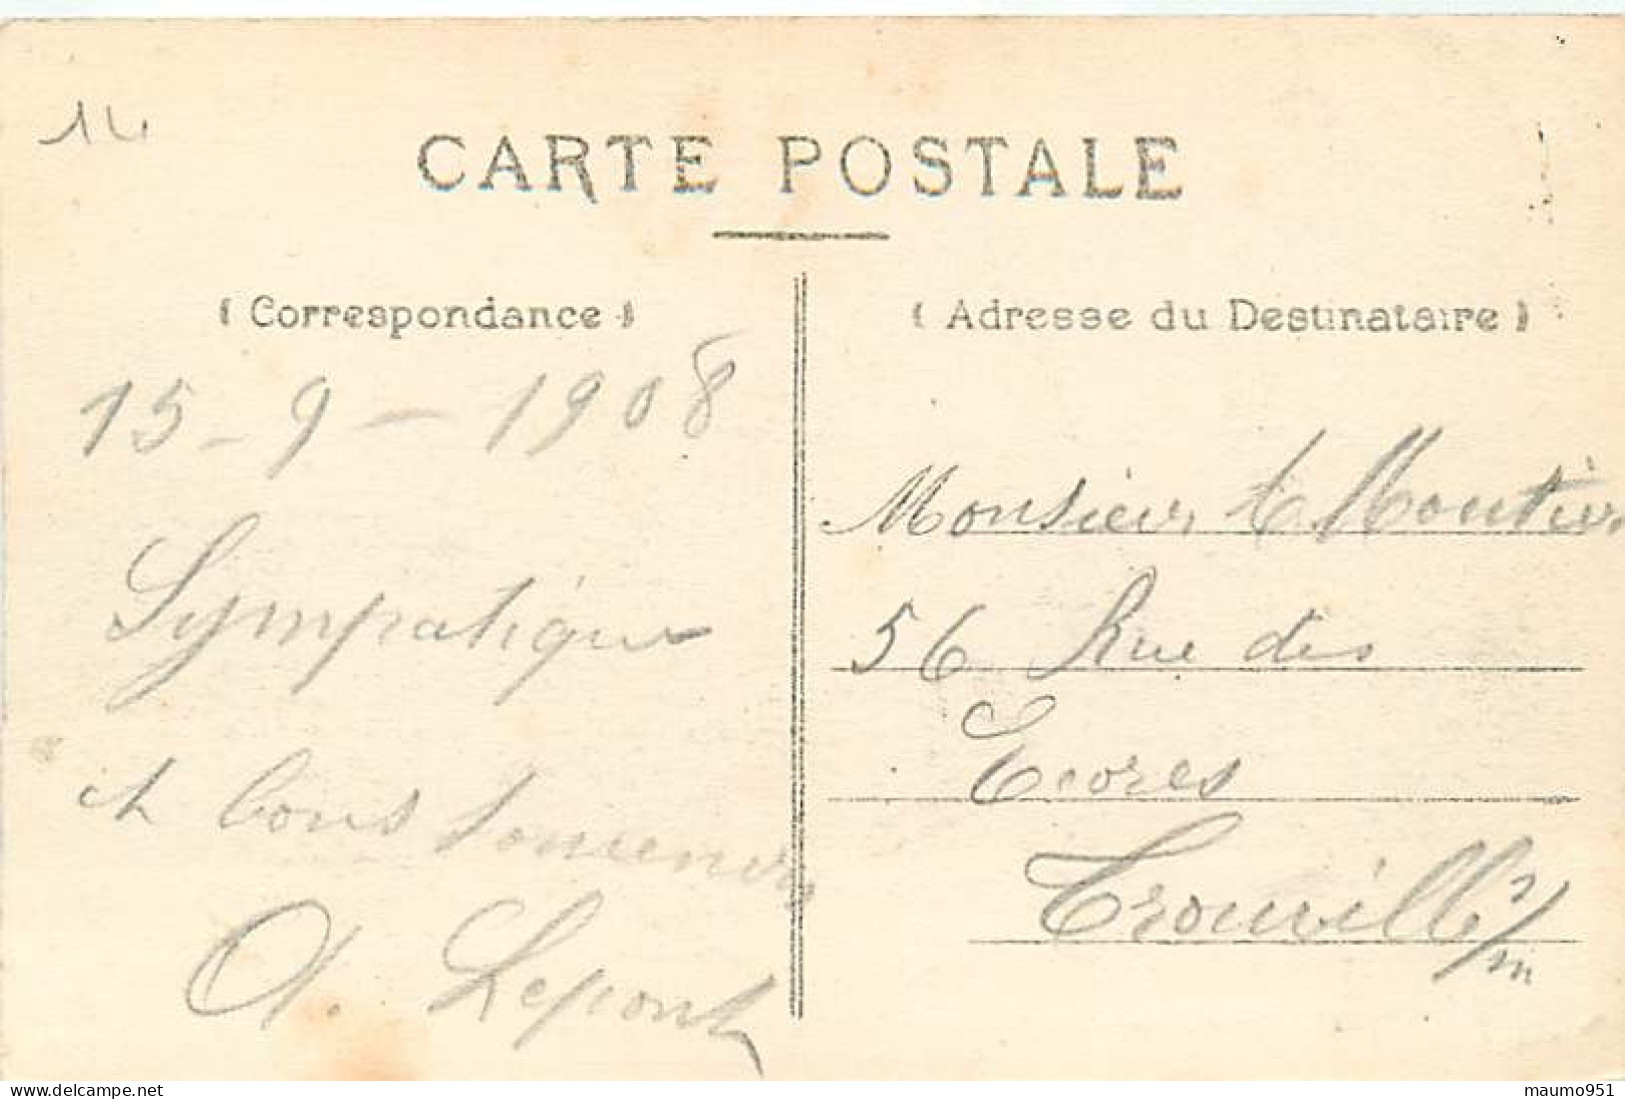 14
CARTE POSTALE
( Correspondance )
15 - 9 - 1908
Sympatique
et bons souvenirs
A. Lepont
( Adresse du Destinataire )
Monsieur E Moutier
56 Rue des
Ecores
Trouville s/m
www.delcampe.net
maumo951